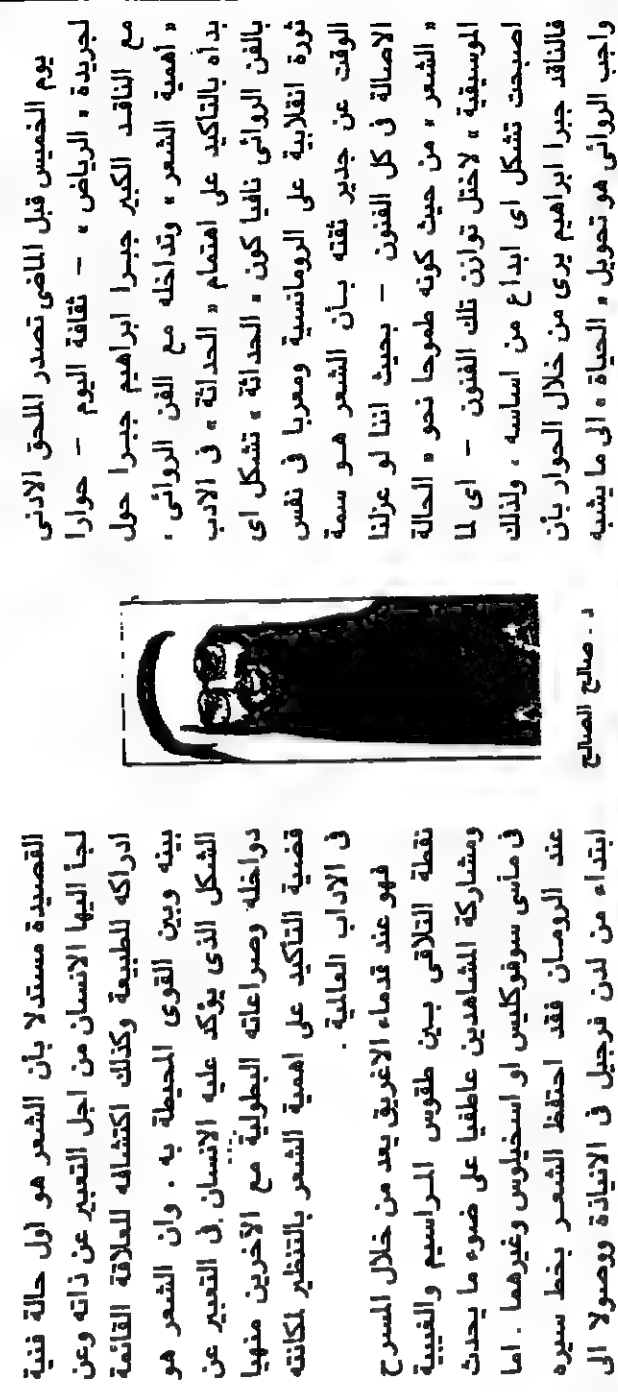 يوم الخميس قبل الماضى تصدر الملحق الادنى
لجريدة « الرياض » - ثقافة اليوم - حوارا
مع الناقد الكبير جبرا ابراهيم جبرا حول
« أهمية الشعر » وتداخله مع الفن الروائى ،
بدأه بالتاكيد على اهتمام « الحداثة » فى الادب
بالفن الروائى نافيا كون « الحداثة » تشكل اى
ثورة انقلابية على الرومانسية ومعربا فى نفس
الوقت عن جدير ثقته بأن الشعر هو سمة
الاصالة فى كل الفنون - بحيث اننا لو عزلنا
« الشعر » من حيث كونه طموحا نحو « الحالة
الموسيقية » لاختل توازن تلك الفنون - اى لما
اصبحت تشكل اى ابداع من اساسه ، ولذلك
فالناقد جبرا ابراهيم يرى من خلال الحوار بأن
واجب الروائى هو تحويل « الحياة » الى ما يشبه
د . صالح الصالح
القصيدة مستدلا بأن الشعر هو أول حالة فنية
لجأ اليها الانسان من اجل التعبير عن ذاته وعن
ادراكه للطبيعة وكذلك اكتشافه للعلاقة القائمة
بينه وبين القوى المحيطة به . وان الشعر هو
الشكل الذى يؤكد عليه الانسان فى التعبير عن
دواخله وصراعاته البطولية مع الآخرين منهيا
قضية التأكيد على اهمية الشعر بالتنظير لمكانته
فى الاداب العالمية .
فهو عند قدماء الاغريق يعد من خلال المسرح
نقطة التلاقى بين طقوس المراسيم والغيبية
ومشاركة المشاهدين عاطفيا على ضوء ما يحدث
فى مأسى سوفوكليس او اسخيلوس وغيرهما . اما
عند الرومان فقد احتفظ الشعر بخط سيره
ابتداء من لدن فرجيل فى الانياذة ووصولا الى